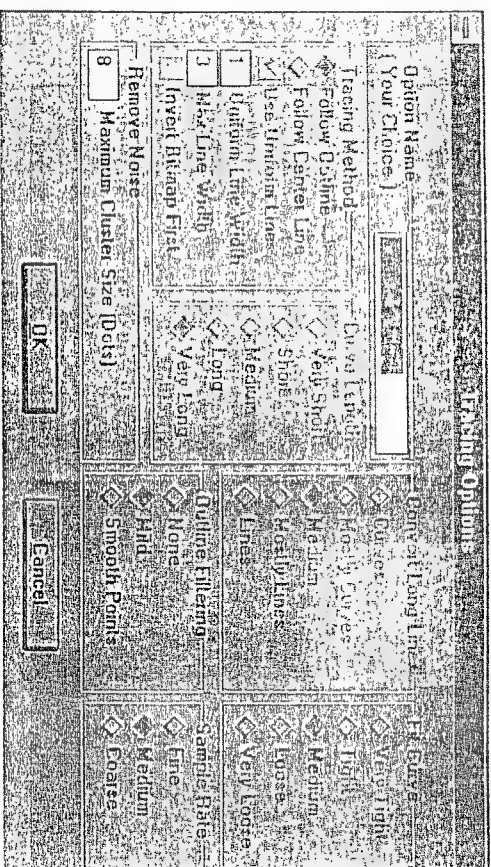 Tracing Options
Option Name
(Your Choice)
Tracing Method
Follow Outline
Follow Center Line
Use Uniform Lines
1 Uniform Line Width
3 Max Line Width
Invert Bitmap First
Curve Length
Very Short
Short
Medium
Long
Very Long
Remove Noise
8 Maximum Cluster Size (Dots)
Convert Long Lines
Curves
Mostly Curves
Medium
Mostly Lines
Lines
Outline Filtering
None
Mild
Smooth Points
Fit Curve
Very Tight
Tight
Medium
Loose
Very Loose
Sample Rate
Fine
Medium
Coarse
OK
Cancel